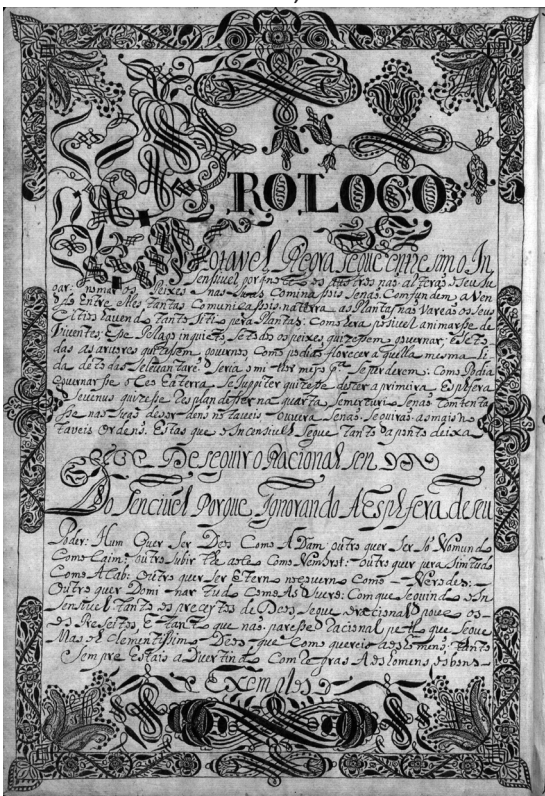 PROLOGO
Notavel Regra segue em si mesmo o In
sensivel porque os Astros nas alteras o seu Su
os Peixes nas suas Cominasois senas Comfundem as Ven
das Entre eles tantas Comunicasois na terra as Plantas nas Vareas os seus
Citios havendo tanto sitio pera Plantas: Como era posivel animarse de
Viventes: Este Pelago inquieto, se todos os peixes quizesem governar; Se to
das as arvores quizesem governos Como podia florecer aquella mesma
Como Podia
governarse o Ceo Ea terra, Se Jupiter quizese deser a primeira Esphera
Se Venus quizese na quarta Se mercurio Senas Contenta
se nas suas desordens notaveis ouvera Senas Seguiras as mais no
taveis Ordens. Estas que o Insensivel Segue tanto a ponto deixa
De seguir o Racional sen
do Sencivel Porque Ignorando A Esphera de seu
Poder: Hum Quer Ser Deos Como ADam outro quer Ser so No mundo
Como Caim: outro Subir the aos Como Nemorot: outro quer
Como ACab: Outro quer Ser Eterno Como Verodes:
Outro quer Domi-nar tudo Como ASuero: Com que Seguindo o In
sensivel tanto os preceptos de Deos Segue o racional pouco os
os Preseitos, E tanto que nas parese Racional pello que Segue
Mas o Clementissimo Deos, que Como quereis aos homens, tanto
Sempre Estais aDvertindo Com Regras Aos homens, os bons
Exemplos